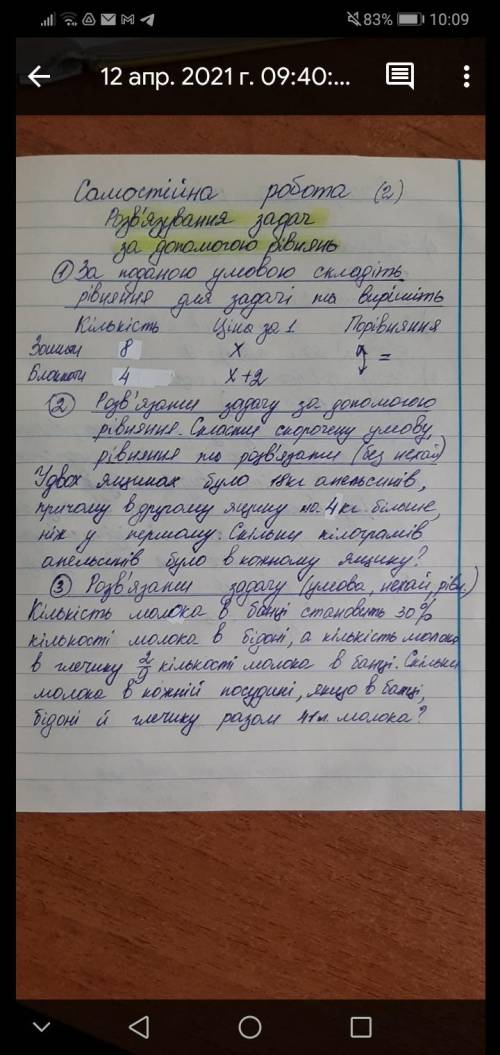 83% 10:09
12 апр. 2021 г. 09:40:...
Самостійна робота (2)
Розв'язування задач
за допомогою рівнянь
① За поданою умовою складіть
рівняння для задачі та вирішіть
Кількість Ціна за 1 Порівняння
Зошити 8 х =
Блокноти 4 х+2
② Розв'язати задачу за допомогою
рівняння. Скласти скорочену умову,
рівняння та розв'язати (без нехай)
У двох ящиках було 18кг апельсинів,
причому в другому ящику на 4 кг більше,
ніж у першому. Скільки кілограмів
апельсинів було в кожному ящику?
③ Розв'язати задачу (умова, нехай, рівн.)
Кількість молока в банці становить 30%
кількості молока в бідоні, а кількість молока
в глечику 2/9 кількості молока в банці. Скільки
молока в кожній посудині, якщо в банці,
бідоні й глечику разом 41л молока?